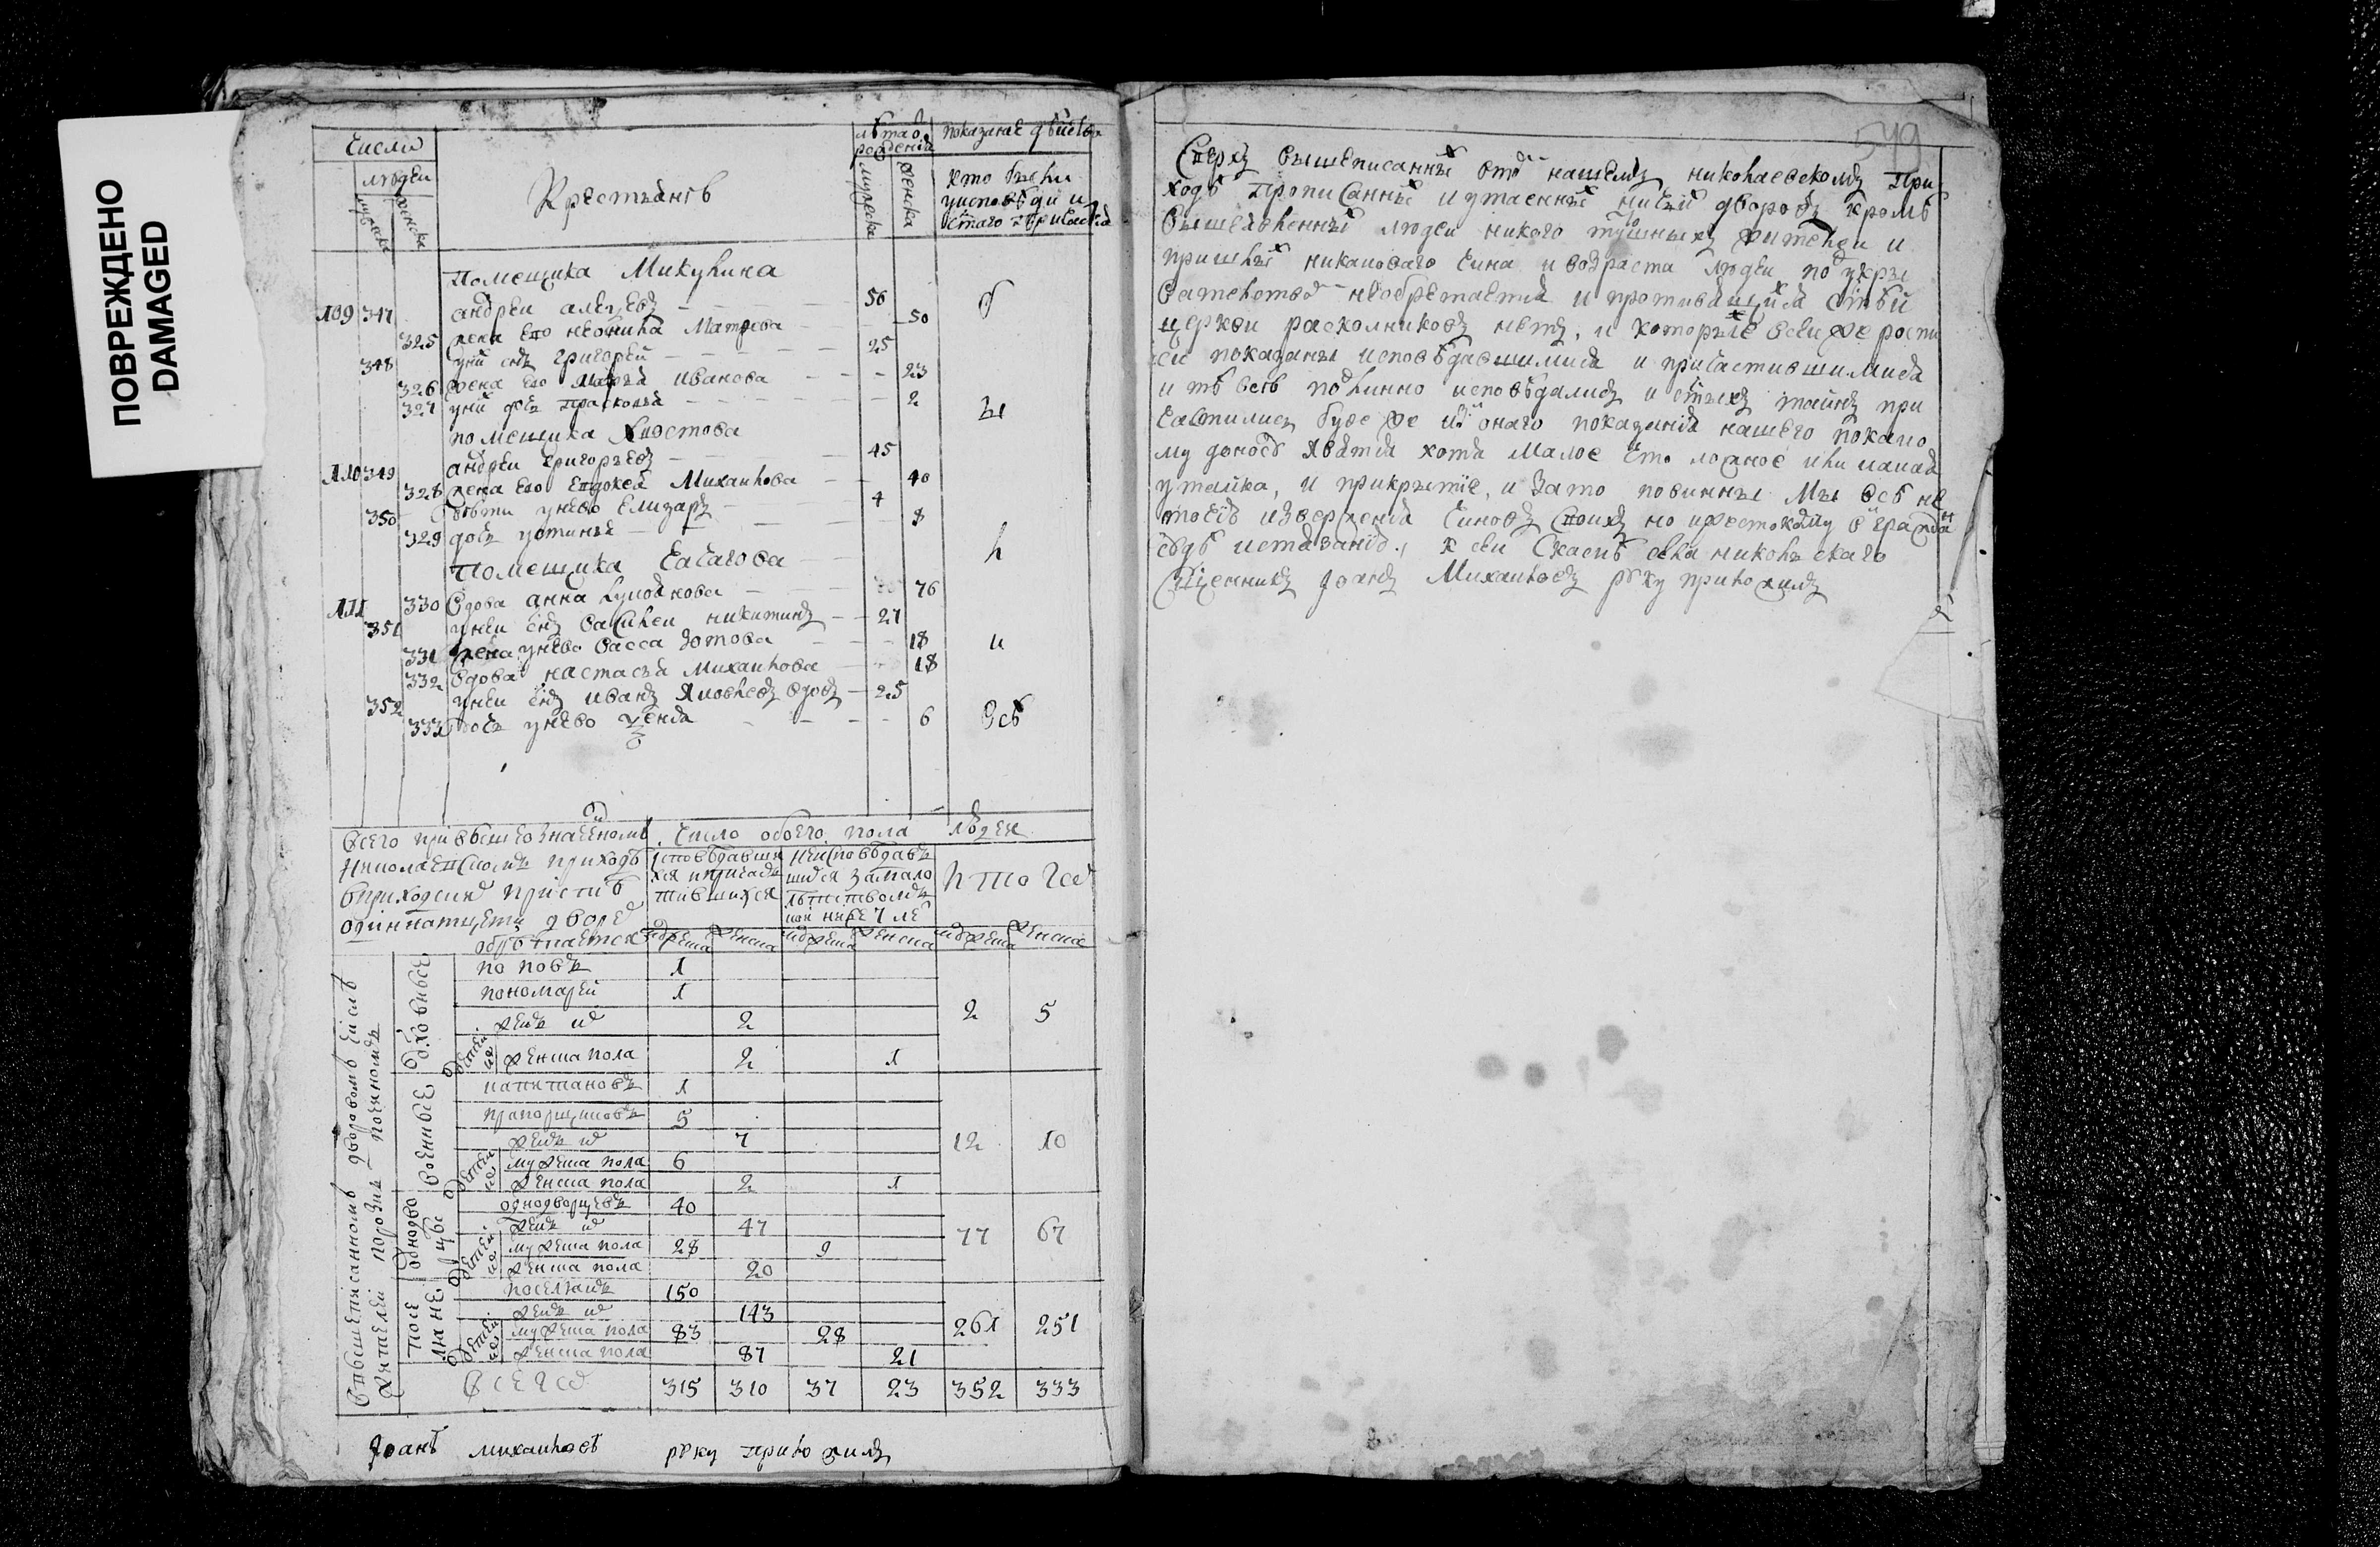 ПОВРЕЖДЕНО
DAMAGED
Числи
людеи
мужеска
женска
Крестьянѣ
лѣта о
рождения
мужеска
женска
показание действа
кто были
уисповѣди и
стаго причастия
помещика Микулина
109 347 андреи алеѯеевъ 56 б
325 жена его неонила Матвеева 50
348 унй снъ григореи 25
326 жена его марѳа иванова 23
327 унй доч прасковья 2 ы
помещика Хвостова
110 349 андреи григорьевъ 45
328 жена его евдокея Михаилова 40
350 дѣти унево елизаръ 4
329 дочь устинья 8
помещика л
111 330 вдова анна 76
351 унеи снъ василеи никитинъ 27
331 жена унево васса зотова 18 и
332 вдова настасья михаилова 18
352 унеи снъ иванъ яковлевъ вдовъ 25
333 дочь унево 6 Всѣ
Всего при вышеозначеномъ
Николаевскомъ приходѣ
вприходских при стѣ
одиннатцети дворе
обретается
Число обоего пола людеи
исповѣдавши
хся ипричас
тившихся
неисповѣдавъ
шихся замало
лѣтствомъ
итого
мужеска женска мужеска женска мужеска женска
вышеписанномъ дворовомъ числѣ
жителеи порознь
духовные
поповъ 1
пономареи 1
женъ их 2
2 5
детеи их
женска пола 2 1
военные
капитановъ 1
прапорщиковъ 5
женъ их 7
12 10
детеи их
мужеска пола 6
женска пола 2 1
однодворцы
однодворцевъ 40
женъ их 47
77 67
детеи их
мужеска пола 28 9
женска пола 20
поселяне
поселянъ 150
женъ их 143
261 251
детеи их
мужеска пола 83 28
женска пола 87 21
Всего 315 310 37 23 352 333
Иоанъ михаиловъ руку приложилъ
549
Сверхъ вышеписанных вто нашемъ николаевскомъ при
ходѣ прописанных и утаенных ничьй дворовъ кромѣ
людеи никого тутошныхъ жителеи и
пришлых никаковаго чина и возраста людеи под укры
вателством необретается и противящихся стѣй
церкви расколниковъ нетъ, и которые всеи же роспи
си показаны исповѣдавшимися и причастившимися
и тѣ всѣ подлинно исповѣдались и стыхъ таинъ при
частились буде же изо онаго показания нашего покако
му доносѣ явится хотя малое что ложное или какая
утайка, и прикрытие, и зато повинны мы всѣ не
точию извержения чиновъ своихъ но ижестокому в гражданс
судѣ истязанию, к сеи скаске села николскаго
сщенникъ Иоанъ Михаиловъ руку приложилъ